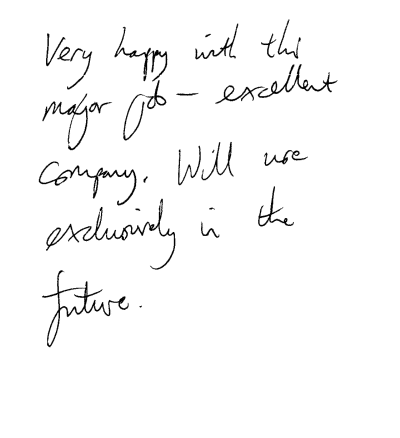 Very happy with this
major job - excellent
company. Will use
exclusively in the
future.